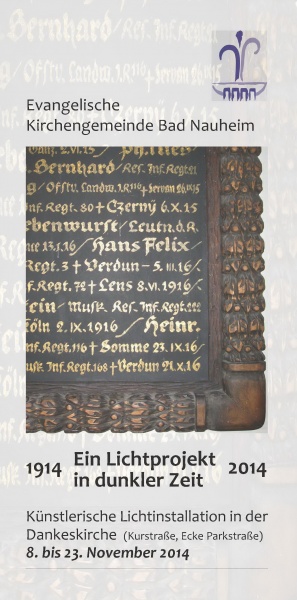 Evangelische
Kirchengemeinde Bad Nauheim
Bernhard / Res. Inf. Regt.
g / Offstv. Landw. I.R. 116 + Servan 26.11.15
Inf. Regt. 80 + Czernÿ 6.X.15
ebenwurst / Leutn. d. R.
13.1.16 / Hans Felix /
Regt. 3 + Verdun – 5.III.16 /
f. Regt. 72 + Lens 8.VI.1916 /
ein / Musk. Res. Inf. Regt. 222
Köln 2.IX.1916 / Heinr.
nf. Regt. 116 + Somme 23.IX.16 /
Inf. Regt. 168 + Verdun 21.X.16
1914 Ein Lichtprojekt 2014
in dunkler Zeit
Künstlerische Lichtinstallation in der
Dankeskirche (Kurstraße, Ecke Parkstraße)
8. bis 23. November 2014